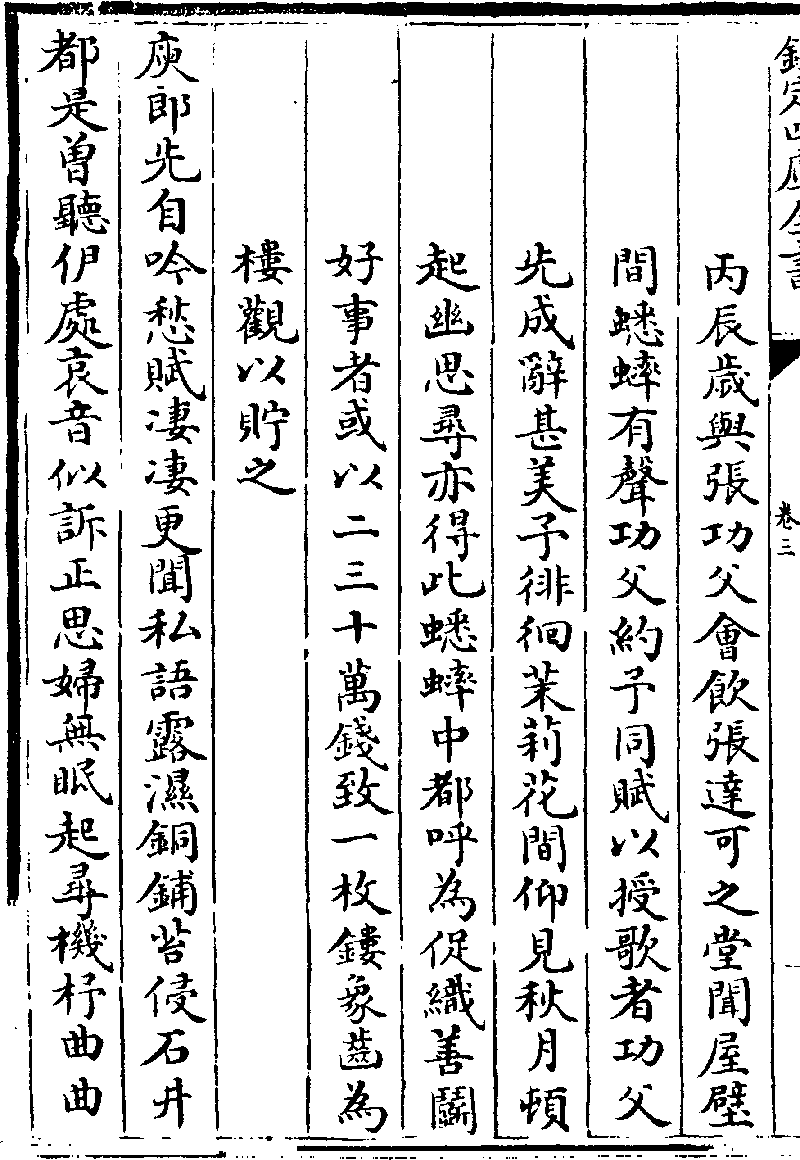 欽定四庫全書
卷三
丙辰歲與張功父會飲張達可之堂聞屋壁
間蟋蟀有聲功父約予同賦以授歌者功父
先成辭甚美予徘徊茉莉花間仰見秋月頓
起幽思尋亦得此蟋蟀中都呼為促織善鬭
好事者或以二三十萬錢致一枚鏤象齒為
樓觀以貯之
庾郎先自吟愁賦凄凄更聞私語露濕銅鋪苔侵石井
都是曽聽伊處哀音似訴正思婦無眠起尋機杼曲曲